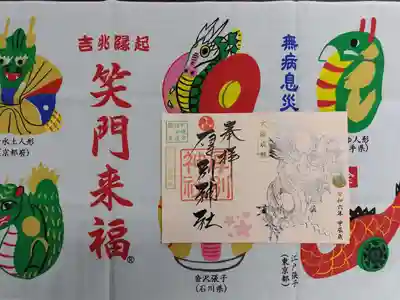 吉兆縁起
笑門来福
®
無病息災
水土人形
(京都府)
人形
手県)
奉拝
厚別神社
令和六年 甲辰歳
金沢張子
(石川県)
江戸張子
(東京都)